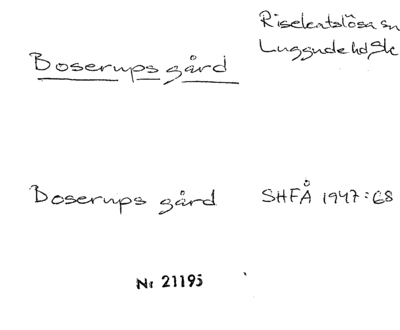 Riseketslösa sn
Luggude hd Sk
Boserups gård
Boserups gård SHFÅ 1947:68
Nr 21195